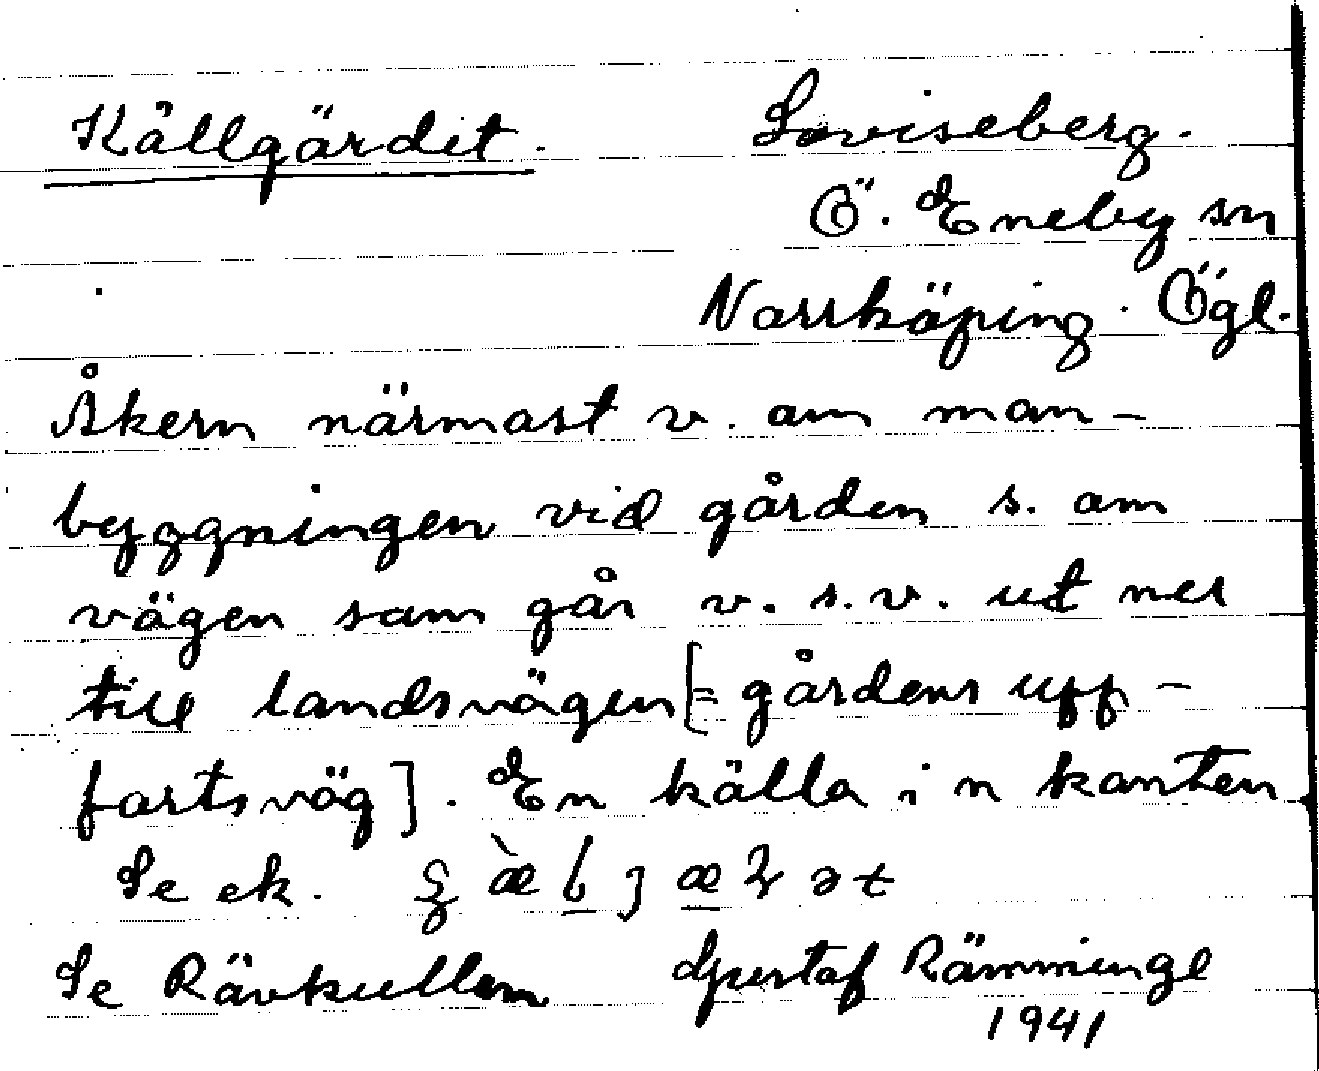 Källgärdet. Loviseberg.
Ö. Eneby sn
Norrköping. Ögl.
Åkern närmast v. om man-
byggningen vid gården s. om
vägen som går v.s.v. ut ner
till landsvägen [= gårdens upp-
fartsväg]. En källa i n kanten
Se ek.
Se Rävkullen Gustaf Rämminge
1941